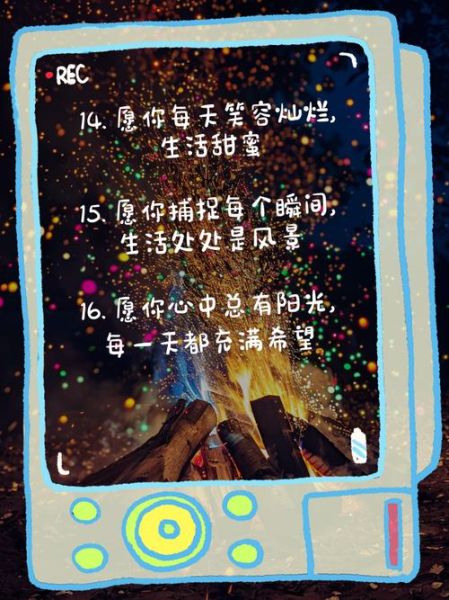 REC
14. 愿你每天笑容灿烂,
生活甜蜜
15. 愿你捕捉每个瞬间,
生活处处是风景
16. 愿你心中总有阳光,
每一天都充满希望